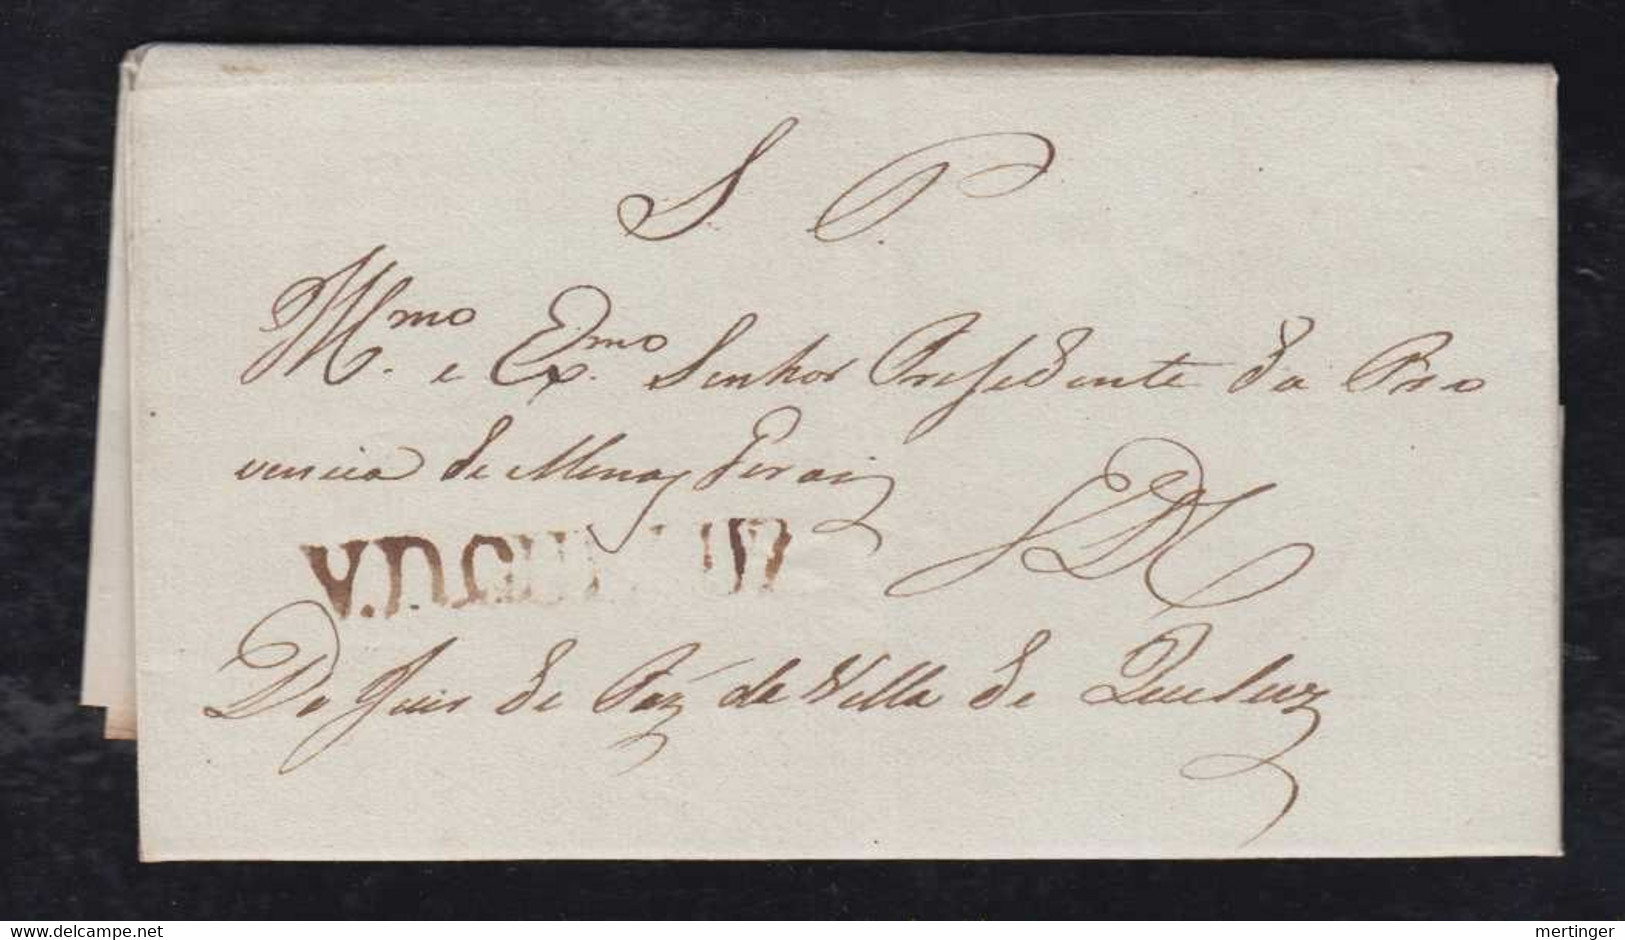 S. P.
Illmo. e Exmo. Senhor Presidente da Pro
vencia de Minas Gerais
V.D.QUELUZ
Do Juis de Paz da Villa de Queluz
www.delcampe.net
mertinger